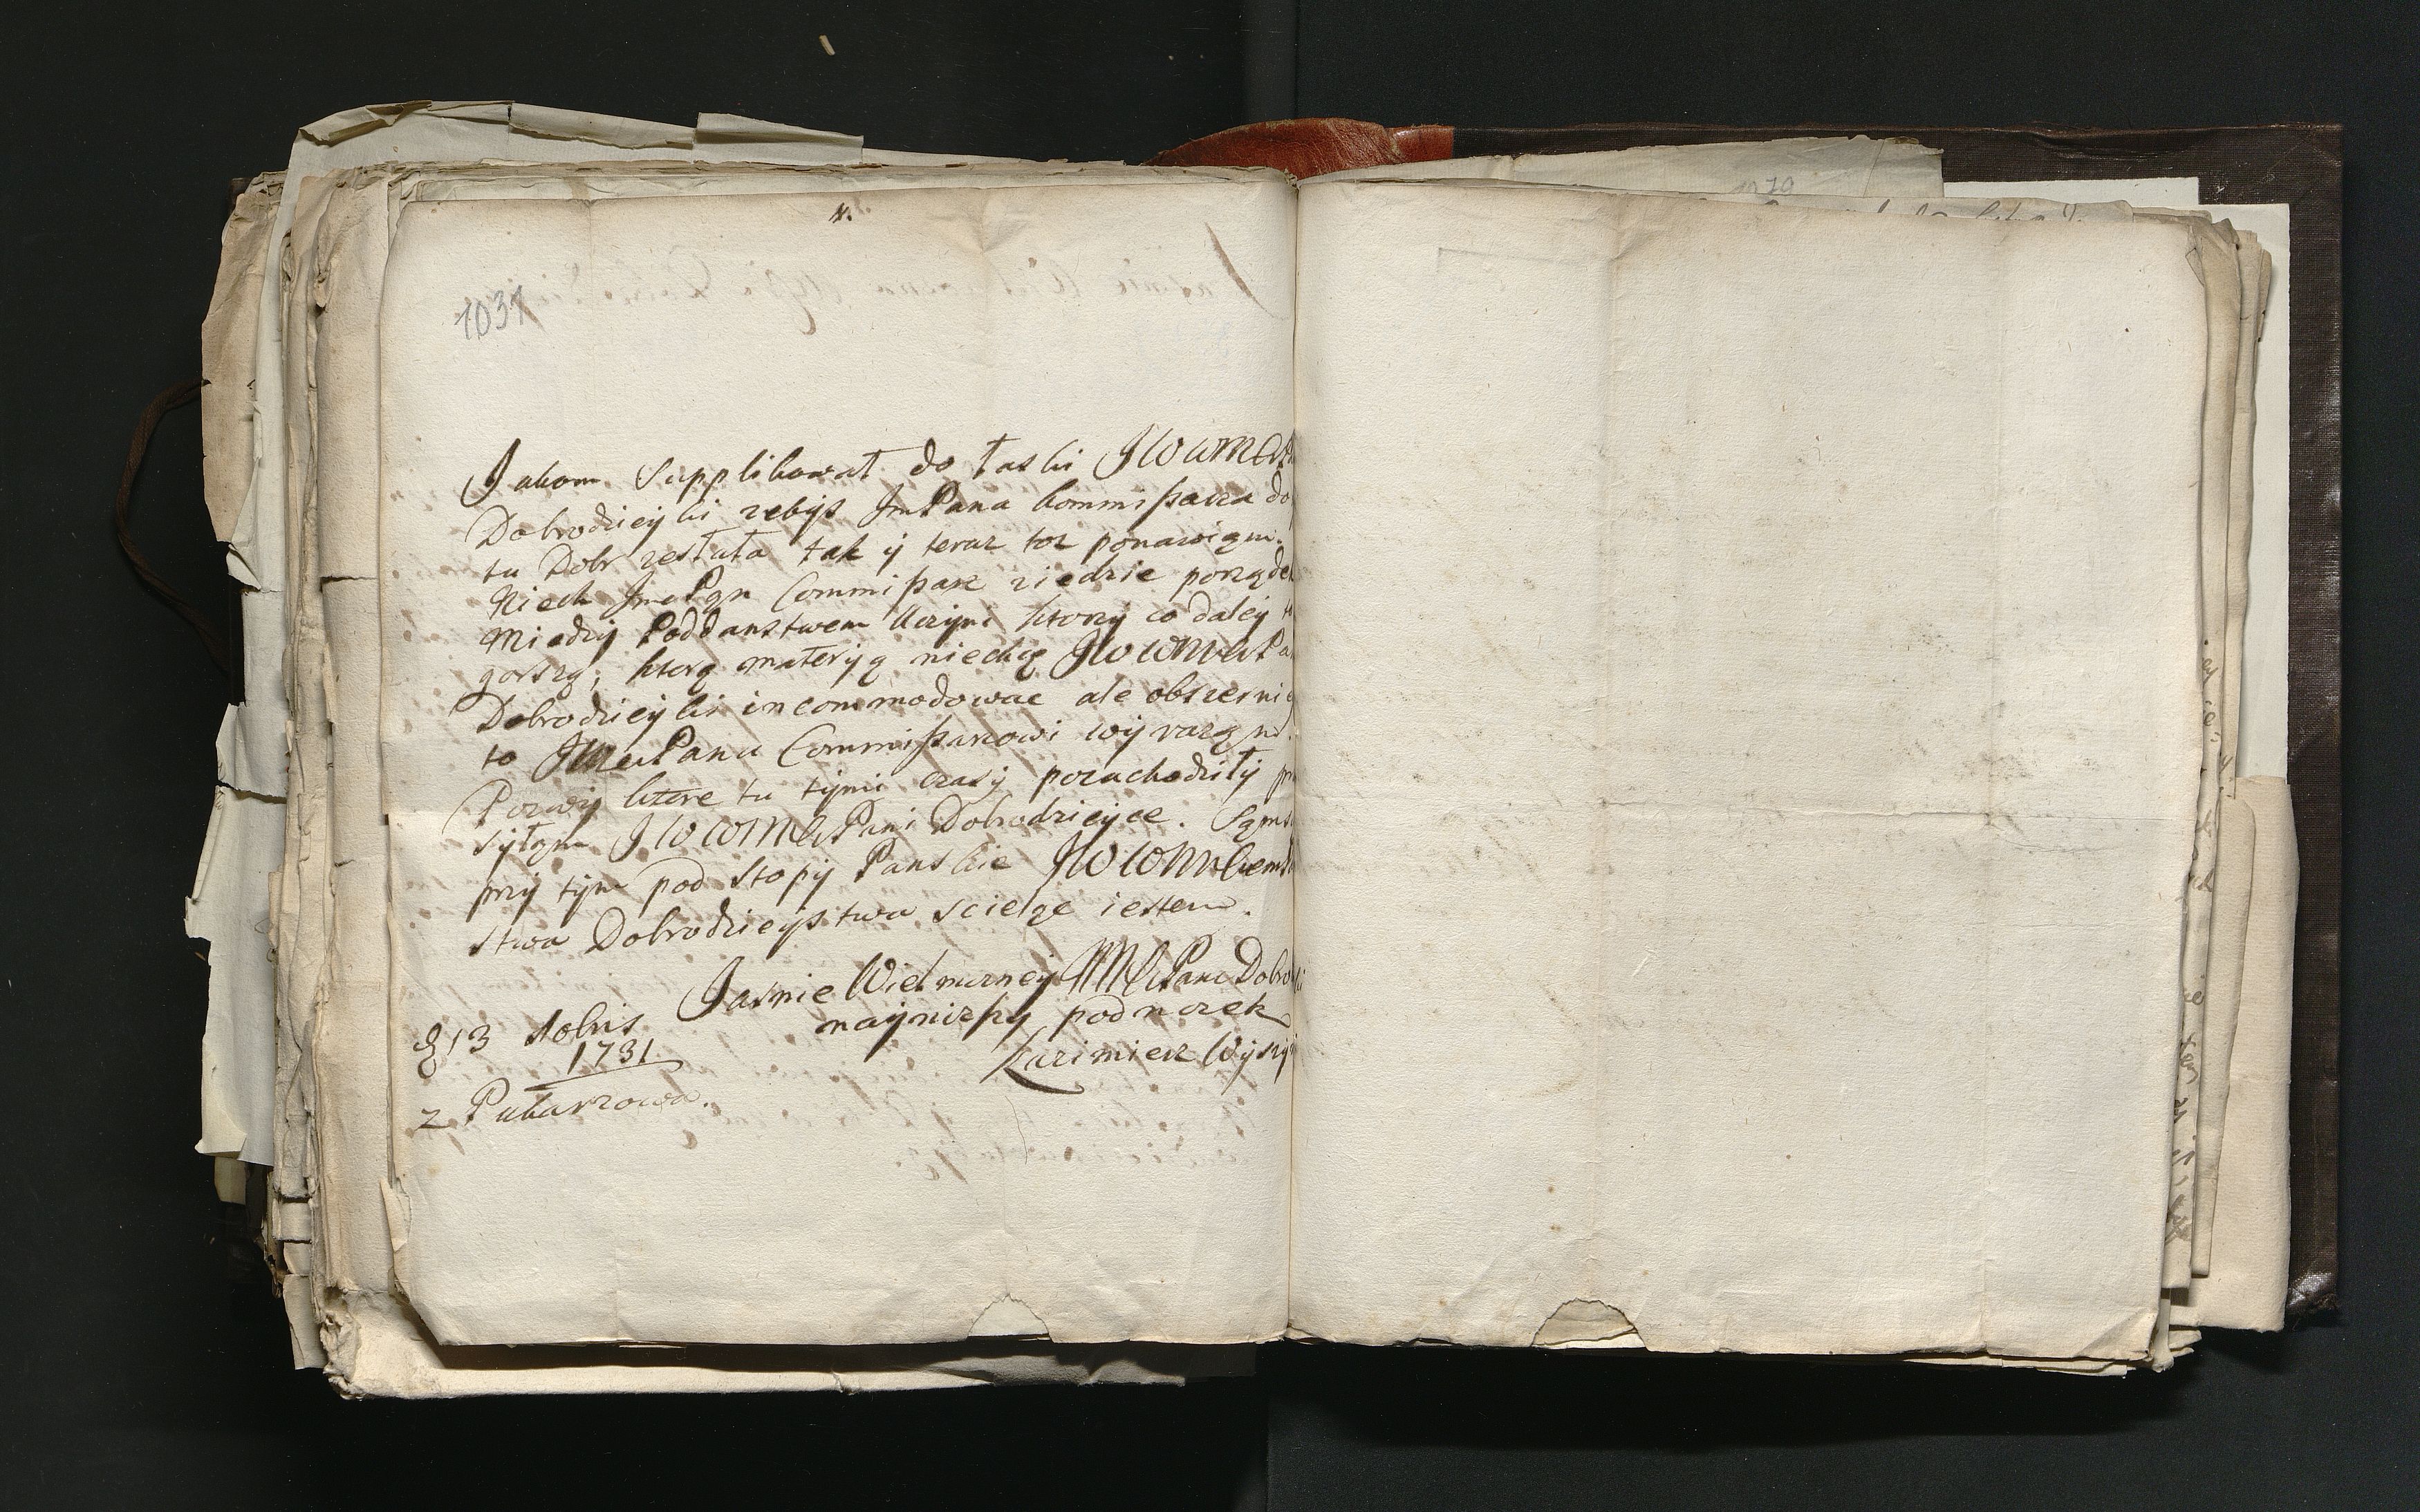 1031
Jakom Supplikował do łaski JWWMCP
Dobrodzieyki zebys JmPana kommissarza do
tu Dobr zesłała tak y teraz toz ponawiąm.
Niech JmcPan Commissarz ziedzie porząde
Miedzy Poddanstwem Uczyni ktory co daley
gorszy, ktorą materyją niechcę JWWMCPa
Dobrodzieyki incommodowac ale obszernie
to JMcPanu Commissarzowi wyrazą
Pozwy ktore tu tymi czasy pozachodziły
syłąm JWWMCPani Dobrodzieyce. Sąm
przy tym pod Stopy Panskie JWW
stwa Dobrodzieystwa scieląc iestem.
Jasnie Wielmozney MMCPani Dobro
nayniszszy podnozek
Kazimierz Wyszy
D 13 Xbris
1731
z Pukarzowa.